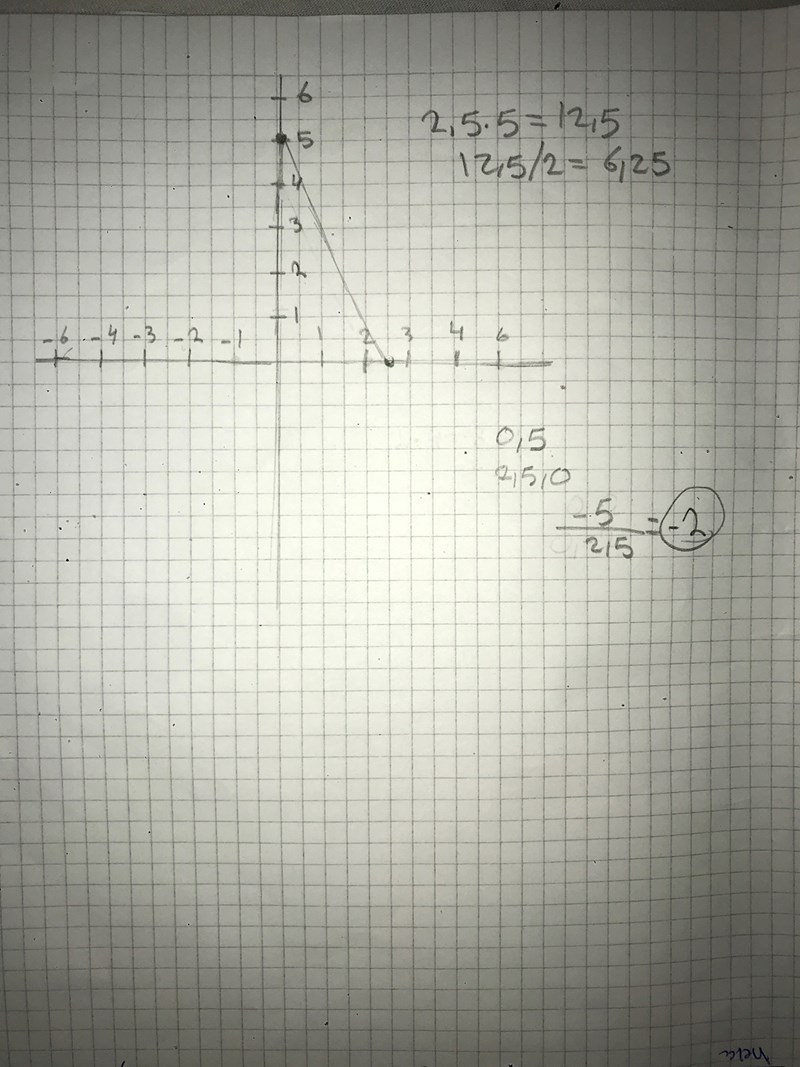 6
5
4
3
2
1
2,5·5=12,5
12,5/2=6,25
-6 -4 -3 -2 -1 1 2 3 4 6
0,5
2,5,0
-5
2,5
=-2